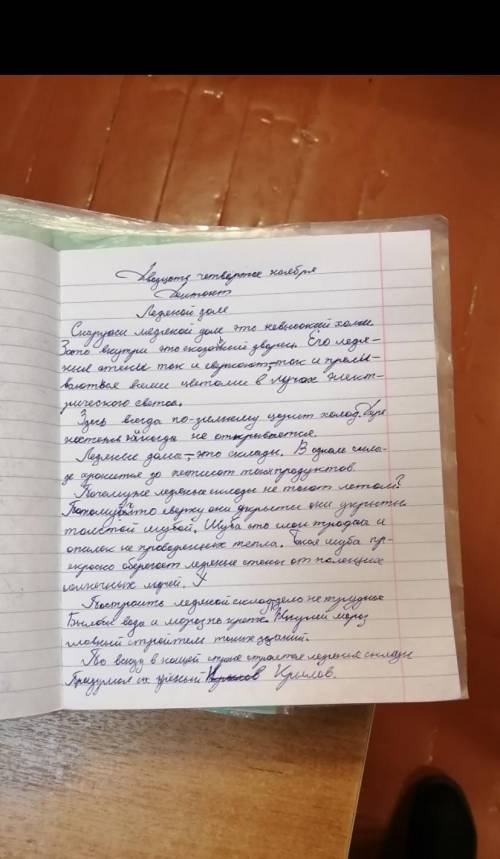 Двадцать четвертое ноября
Диктант
Ледяной дом
Снаружи ледяной дом, это невысокий холм.
Зато внутри это сказочный дворец. Его ледя-
ные стены так и сверкают, так и перели-
ваются всеми цветами в лучах элект-
рического света.
Здесь всегда по-зимнему царит холод.
не открывается.
Ледяные дома - это склады. В одном скла-
де хранится до пятисот тонн продуктов.
Почему же ледяные склады не тают летом?
Потому что сверху они укрыты
толстой шубой. Шуба это слои и
опилок не тепла. Такая шуба пре-
красно оберегает ледяные стены от палящих
солнечных лучей.
Построить ледяной склад дело не трудное
Была бы вода и мороз по крепче. мороз
главный строитель таких зданий.
По всюду в нашей стране строятся ледяные склады
Придумал их Крылов.